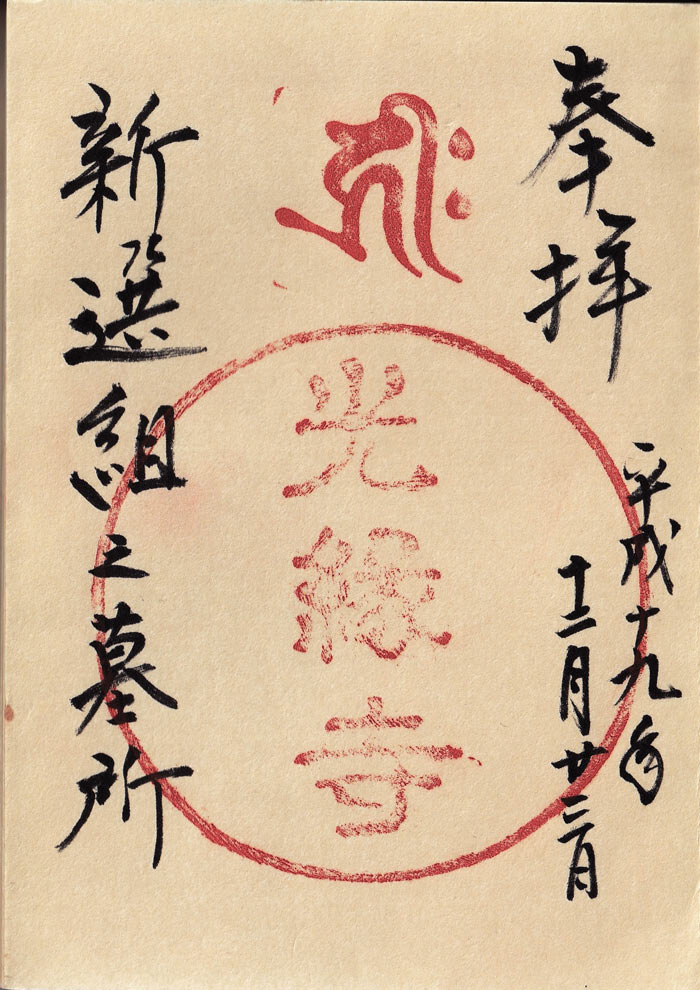 奉拝
平成十九年
十二月廿三日
𑖮𑖿𑖨𑖱𑖾
光縁寺
新選組之墓所